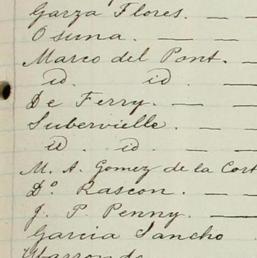 Garza Flores. —
Osuna. — —
Marco del Pont. —
id. id. —
De Ferry. — —
Suberville. — —
id. id. —
M. A. Gomez de la Cort
Dº Rascon. —
J. P. Penny. —
Garcia Sancho